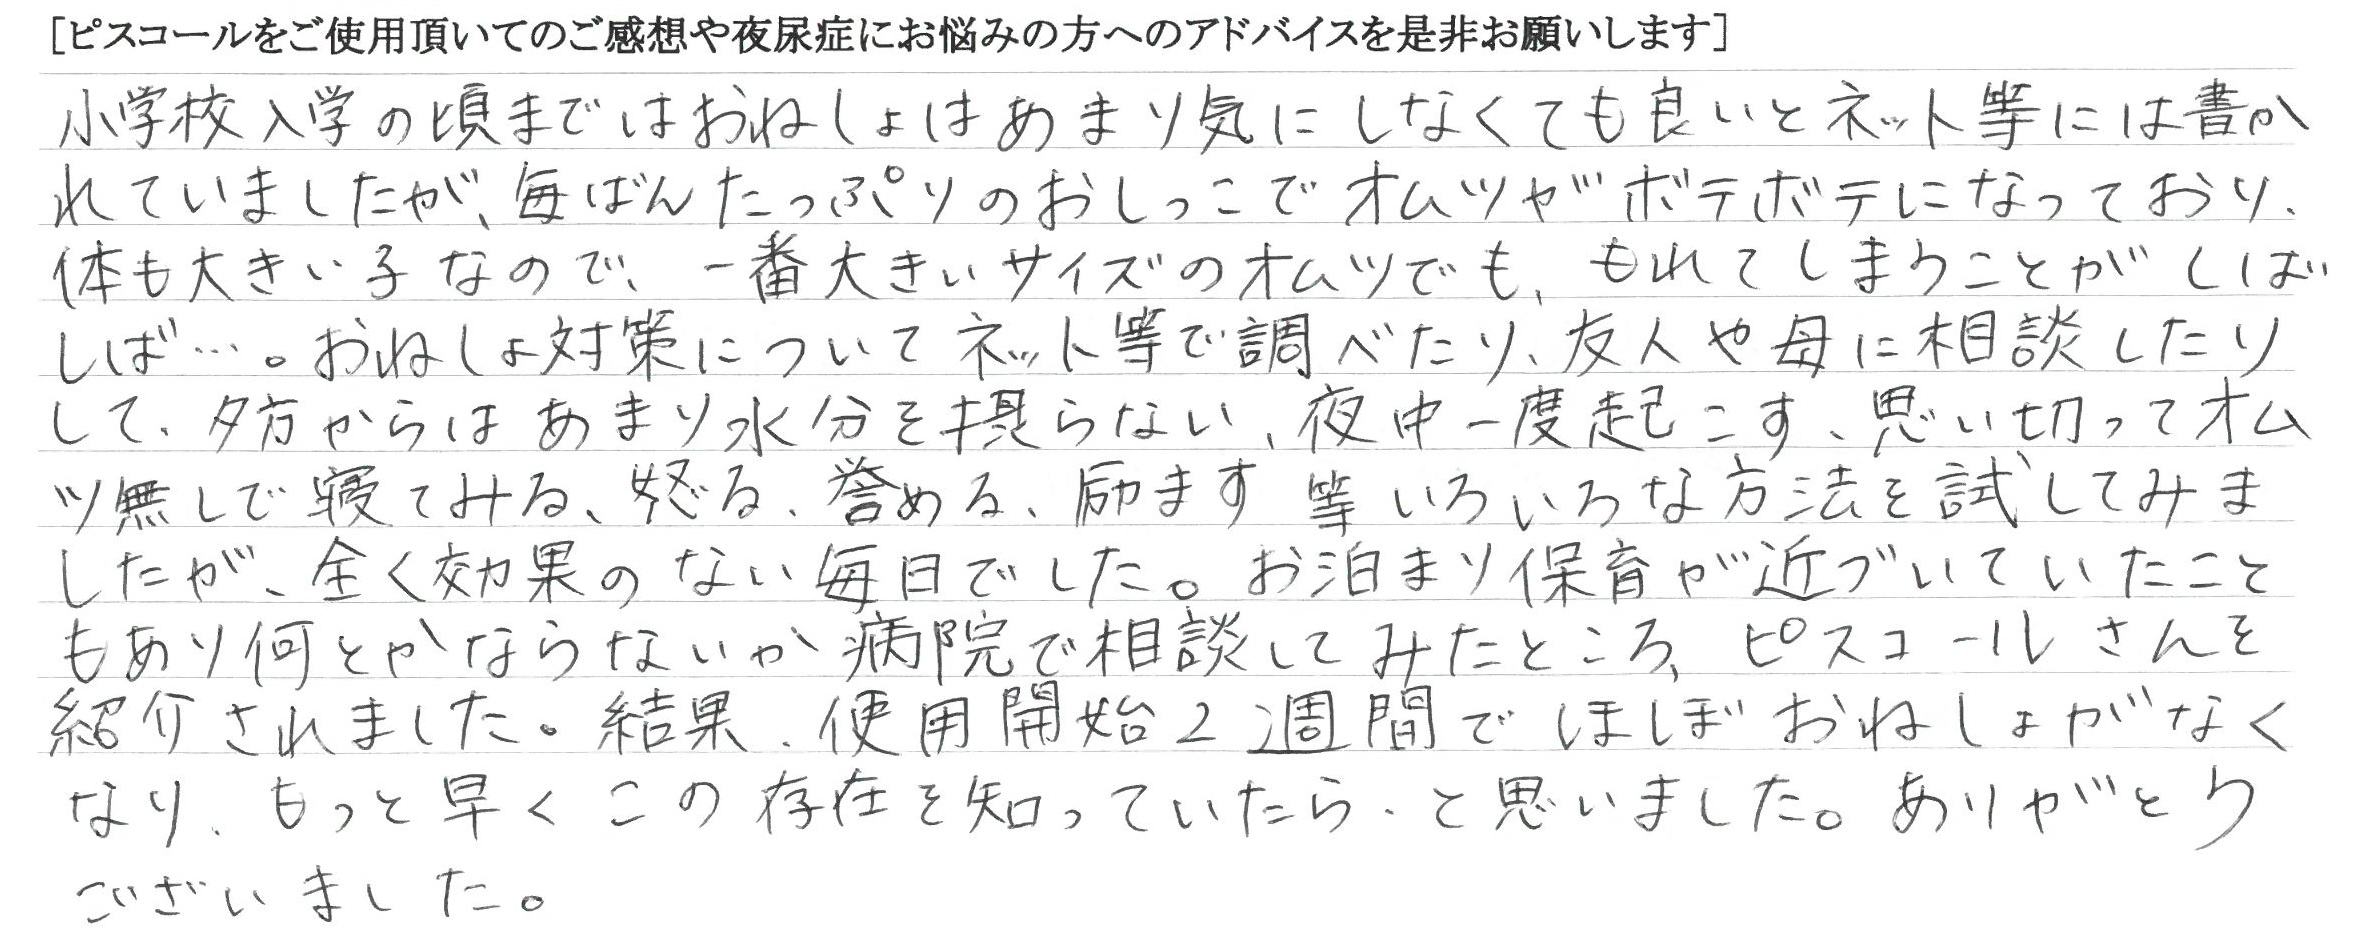 [ピスコールをご使用頂いてのご感想や夜尿症にお悩みの方へのアドバイスを是非お願いします]
小学校入学の頃まではおねしょはあまり気にしなくても良いとネット等には書か
れていましたが、毎ばんたっぷりのおしっこでオムツがボテボテになっており、
体も大きい子なので、一番大きいサイズのオムツでも、もれてしまうことがしば
しば…。おねしょ対策についてネット等で調べたり、友人や母に相談したり
して、夕方からはあまり水分を摂らない、夜中一度起こす、思い切ってオム
ツ無しで寝てみる、怒る、誉める、励ます等いろいろな方法を試してみま
したが、全く効果のない毎日でした。お泊まり保育が近づいていたこと
もあり何とかならないか病院で相談してみたところ、ピスコールさんを
紹介されました。結果、使用開始2週間でほぼおねしょがなく
なり、もっと早くこの存在を知っていたら、と思いました。ありがとう
ございました。